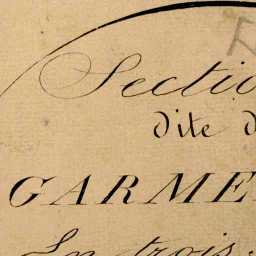 Sectio
dite d
GARME
En trois